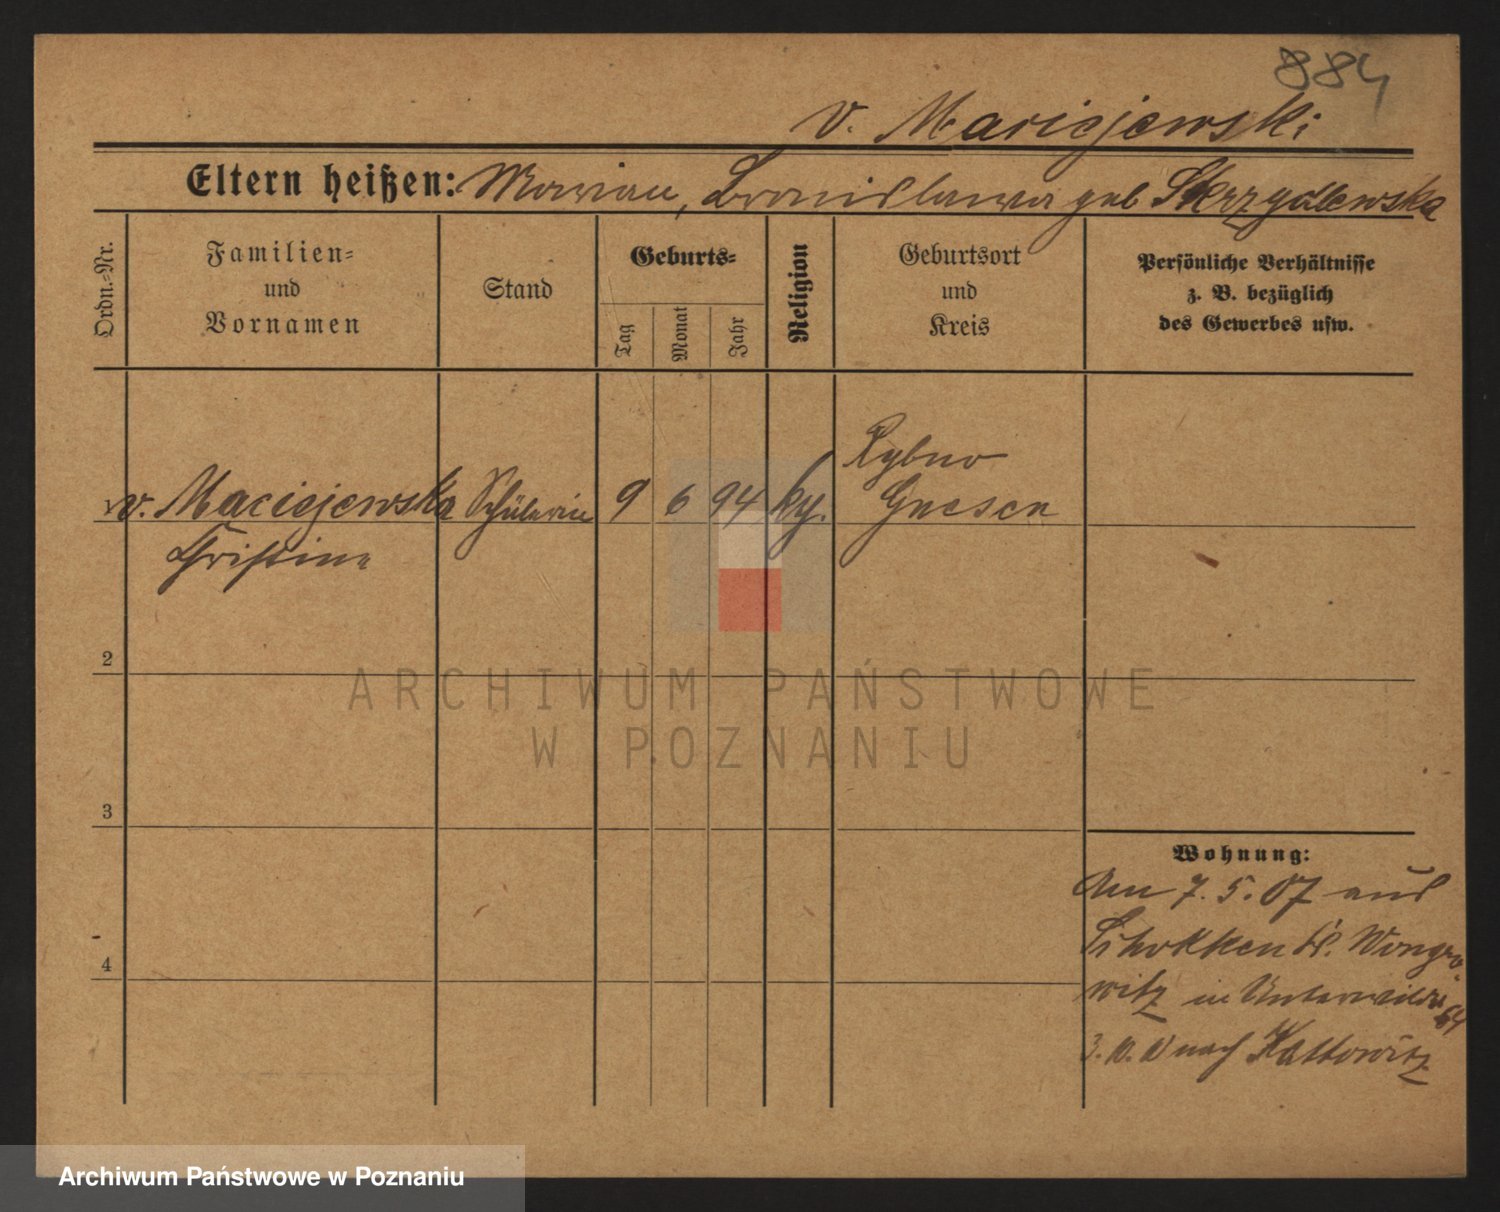 884
v. Maciejewski
Eltern heißen: Marian, Bronislawa geb Skrzydlewska
Ordn.-Nr.
Familien- und Vornamen
Stand
Geburts-
Tag
Monat
Jahr
Religion
Geburtsort und Kreis
Persönliche Verhältnisse
z. B. bezüglich
des Gewerbes usw.
1 v. Maciejewska Schülerin 9 6 94 kg. Rybno
Gnesen
Christine
2
3
4
Wohnung:
Am 7. 5. 07 aus
Schokken Kr. Wongro-
witz in Unterwilda 64
3. 10. 10 nach Kattowitz
ARCHIWUM PAŃSTWOWE
W POZNANIU
Archiwum Państwowe w Poznaniu